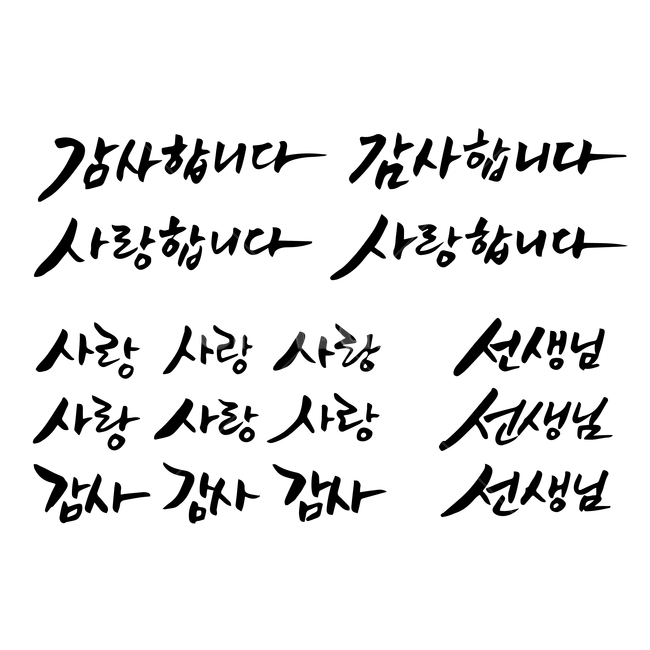 감사합니다 감사합니다
사랑합니다 사랑합니다
사랑 사랑 사랑 선생님
사랑 사랑 사랑 선생님
감사 감사 감사 선생님